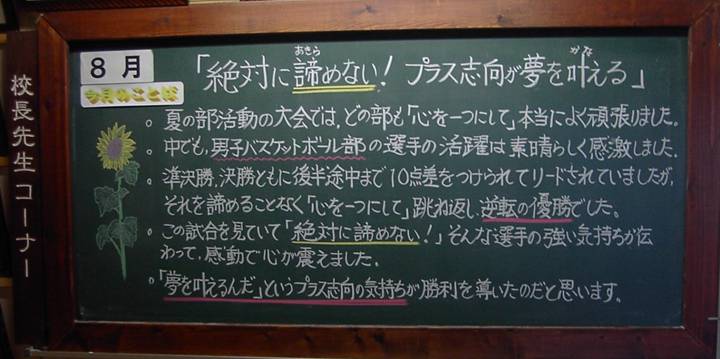 校長先生コーナー
8月
今月のことば
「絶対に諦めない！プラス志向が夢を叶える」
あきら
かな
。夏の部活動の大会では、どの部も「心を一つにして」本当によく頑張りました。
。中でも、男子バスケットボール部の選手の活躍は素晴らしく感激しました。
。準決勝、決勝ともに後半途中まで10点差をつけられてリードされていましたが、
それを諦めることなく「心を一つにして」跳ね返し、逆転の優勝でした。
。この試合を見ていて「絶対に諦めない！」そんな選手の強い気持ちが伝
わって、感動で心が震えました。
。「夢を叶えるんだ」というプラス志向の気持ちが勝利を導いたのだと思います。